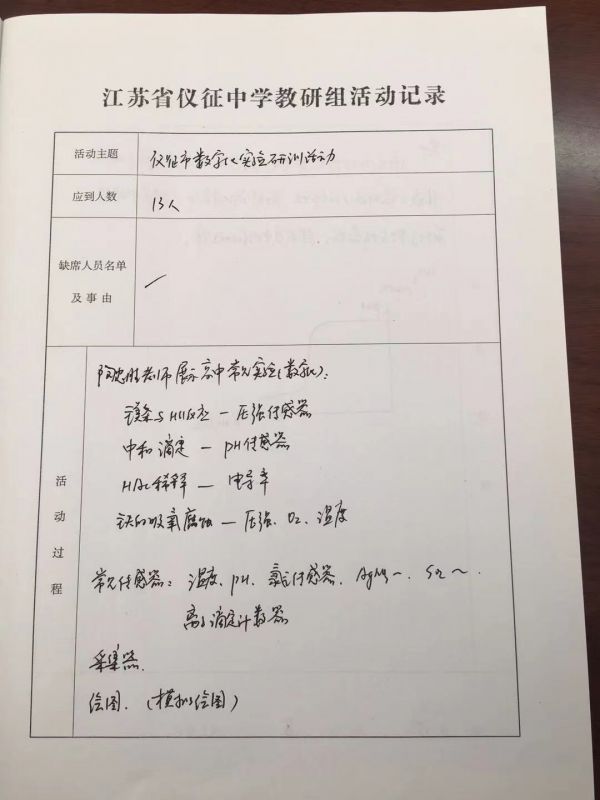 江苏省仪征中学教研组活动记录
活动主题
仪征市数字化实验研训活动
应到人数
13人
缺席人员名单
及事由
活动过程
老师展示高中常见实验(数字化):
镁条与HCl反应 — 压强传感器
中和滴定 — pH传感器
HAc稀释 — 电导率
铁的吸氧腐蚀 — 压强、O₂、温度
常见传感器: 温度、pH、氯离子传感器、
离子滴定计数器
采集器.
绘图. (模拟绘图)